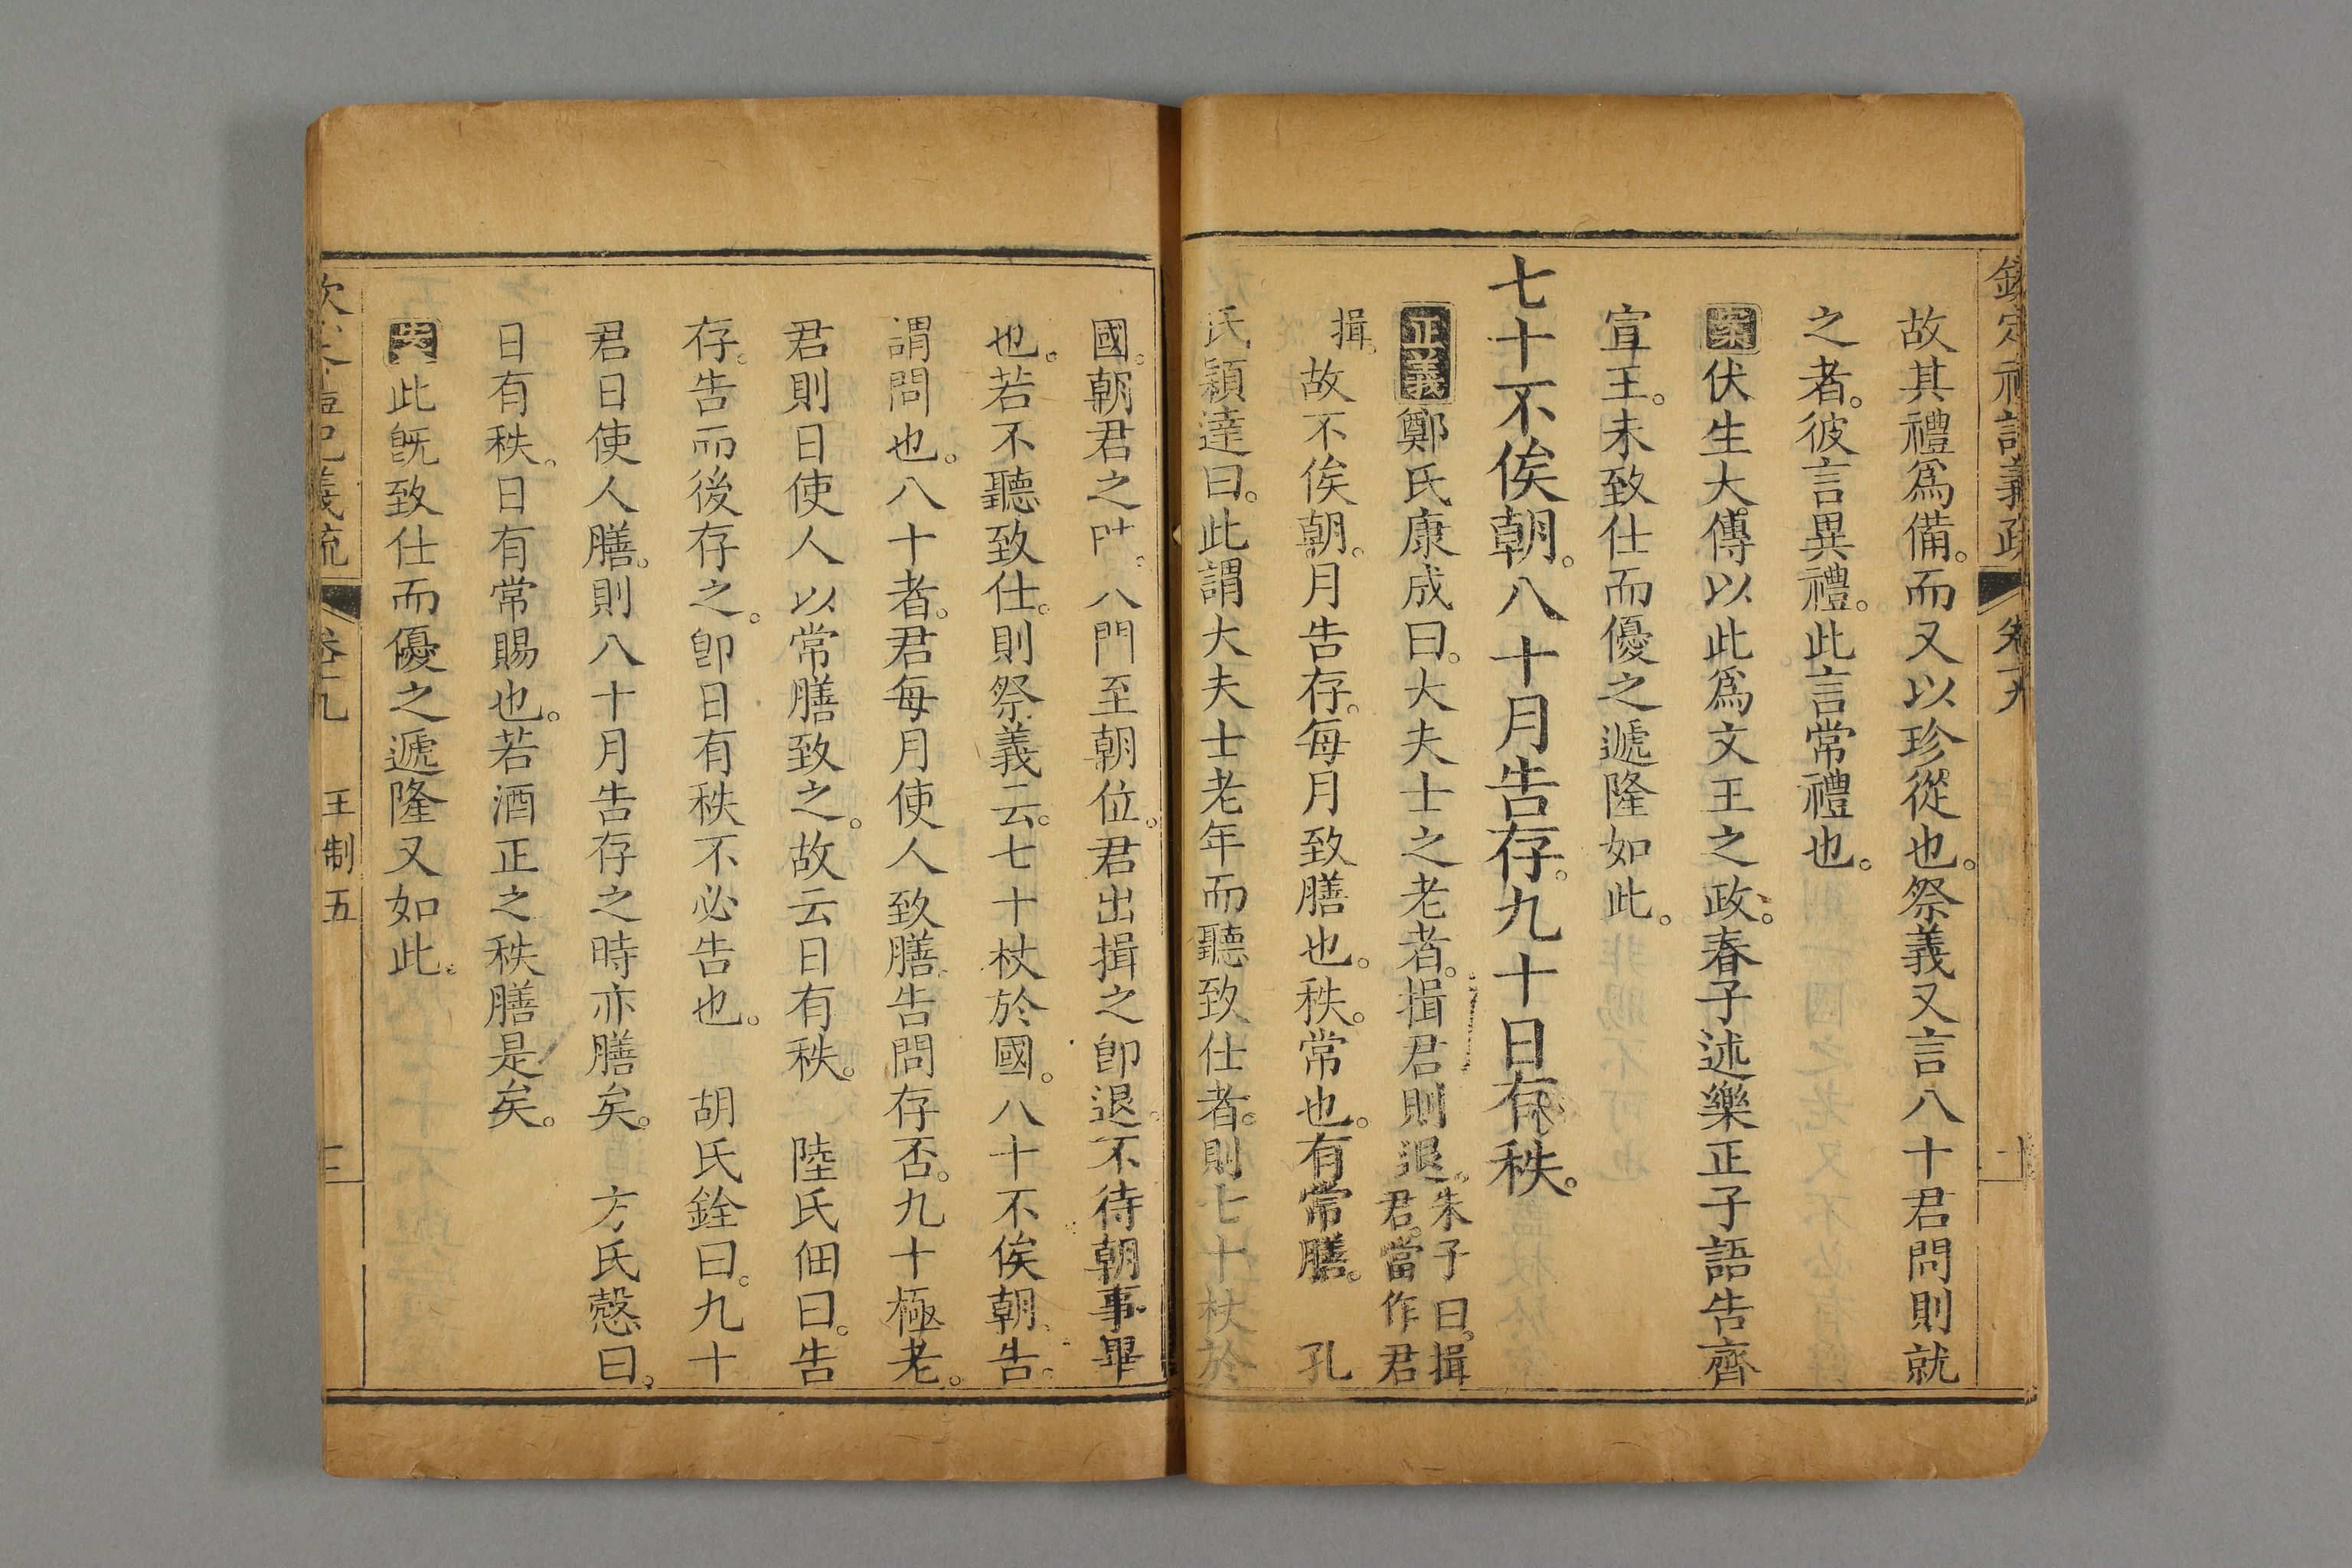 故其禮爲備。而又以珍從也。祭義又言八十君問則就
之者。彼言異禮。此言常禮也。
案伏生大傳以此爲文王之政。春子述樂正子語告齊
宣王。未致仕而優之遞隆如此。
七十不俟朝。八十月告存。九十日有秩。
正義鄭氏康成曰。大夫士之老者。揖君則退。朱子曰。揖君。當作君
揖。故不俟朝。月告存。每月致膳也。秩。常也。有常膳。 孔
氏穎達曰。此謂大夫士老年而聽致仕者。則七十杖於
國。朝君之時。入門至朝位。君出揖之卽退。不待朝事畢
也。若不聽致仕。則祭義云。七十杖於國。八十不俟朝。告。
謂問也。八十者。君每月使人致膳。告問存否。九十極老。
君則日使人以常膳致之。故云日有秩。 陸氏佃曰。告
存。告而後存之。卽日有秩不必告也。 胡氏銓曰。九十
君日使人膳。則八十月告存之時亦膳矣。 方氏慤曰。
日有秩。日有常賜也。若酒正之秩膳是矣。
此旣致仕而優之遞隆又如此。
王制五